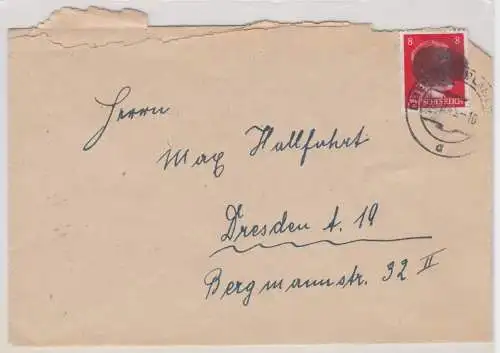 8 8
Herrn
Max Hallfahrt
Dresden A. 19
Bergmannstr. 32 II